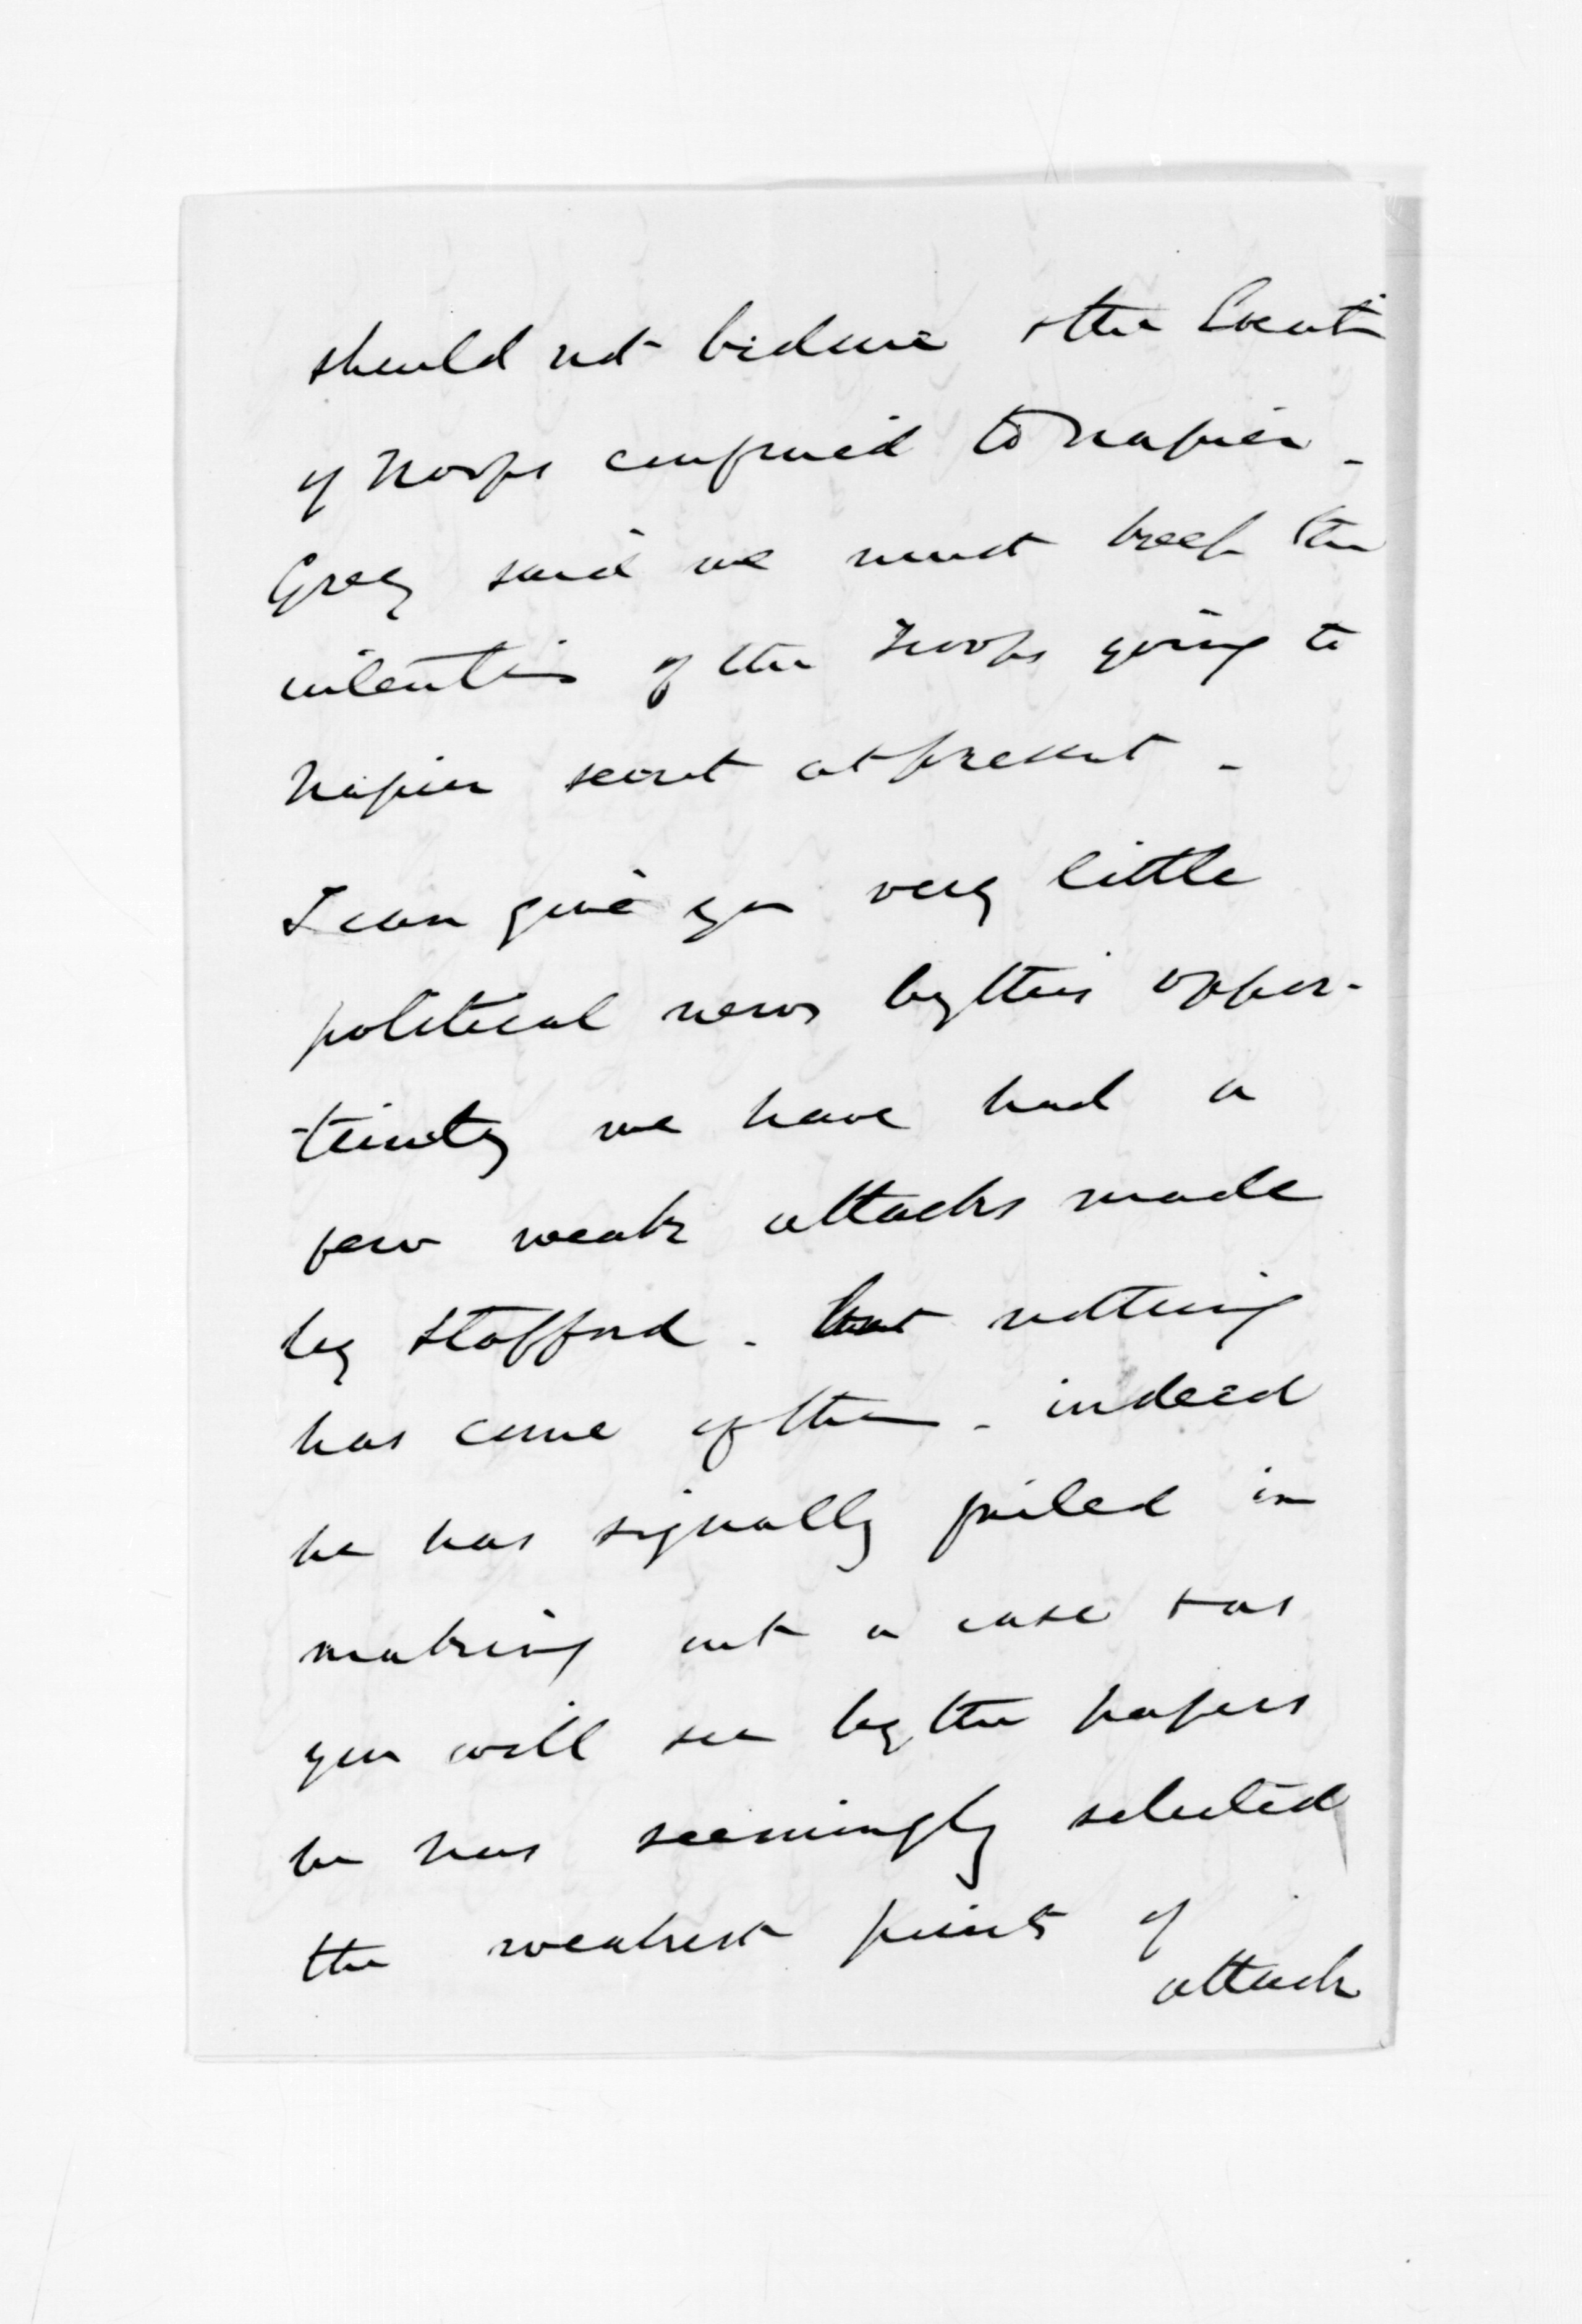 should not be done & the Locatn
of troops confined to Napier -
Grey said we must keep the
intention of the Troops going to
Napier secret at present -
I can give you very little
political news by this oppor-
tunity we have had a
few weak attacks made
by Stafford - but nothing
has come of them - indeed
he has signally failed in
making out a case & as
you will see by the papers
he has seemingly selected
the weakest points of
attack